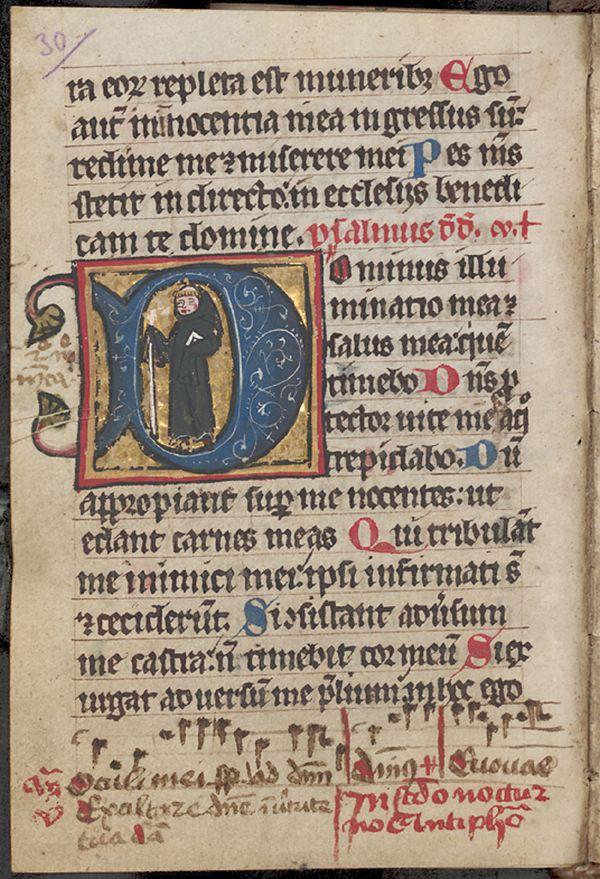 30
ta eoꝝ repleta est muneribꝫ Ego
aut̄ in innocentia mea ingressus sū:
redime me ⁊ miserere mei Pes m̄s
stetit in directo: in ecclesijs benedi
cam te domine. psalmus dd̄.
Dominus illu
minatio mea ⁊
salus mea: quē
timebo Dn̄s ꝓ
tector uite mee aq̊
trepidabo. Dū
appropiant suꝑ me nocentes: ut
edant carnes meas Qui tribulāt
me inimici mei: ipsi infirmati s̄
⁊ ceciderūt. Si ↄsistant aduersum
me castra: nō timebit cor meū Si ex
urgat aduersum me p̄lium: in hoc ego
Oculi mei sꝑ ad dn̄m Euouae
In scd̄o noctur
no Antiphō